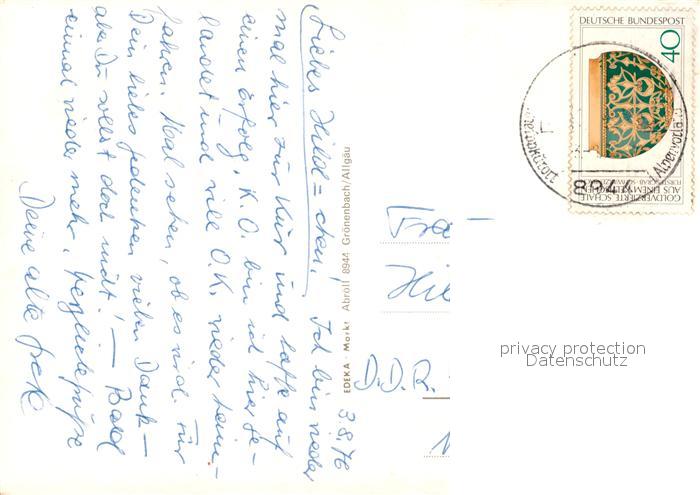 3.8.76
Liebes Hild=chen! Ich bin wieder
mal hier zur Kur und hoffe auf
einen Erfolg. K.O. bin ich hier ge-
landet und will O.K. wieder heim-
fahren. Mal sehen, ob es wird. Für
Dein liebes Gedenken vielen Dank –
aber Du sollst doch nicht! — Bald
einmal wieder mehr. Herzliche Grüße
Deine alte
EDEKA - Markt Abröll 8944 Grönenbach/Allgäu
DEUTSCHE BUNDESPOST
40
GOLDVERZIERTE SCHALE
AUS EINEM KELTISCHEN
FÜRSTENGRAB
8944
Frau
Hil
D.D.R.
privacy protection
Datenschutz